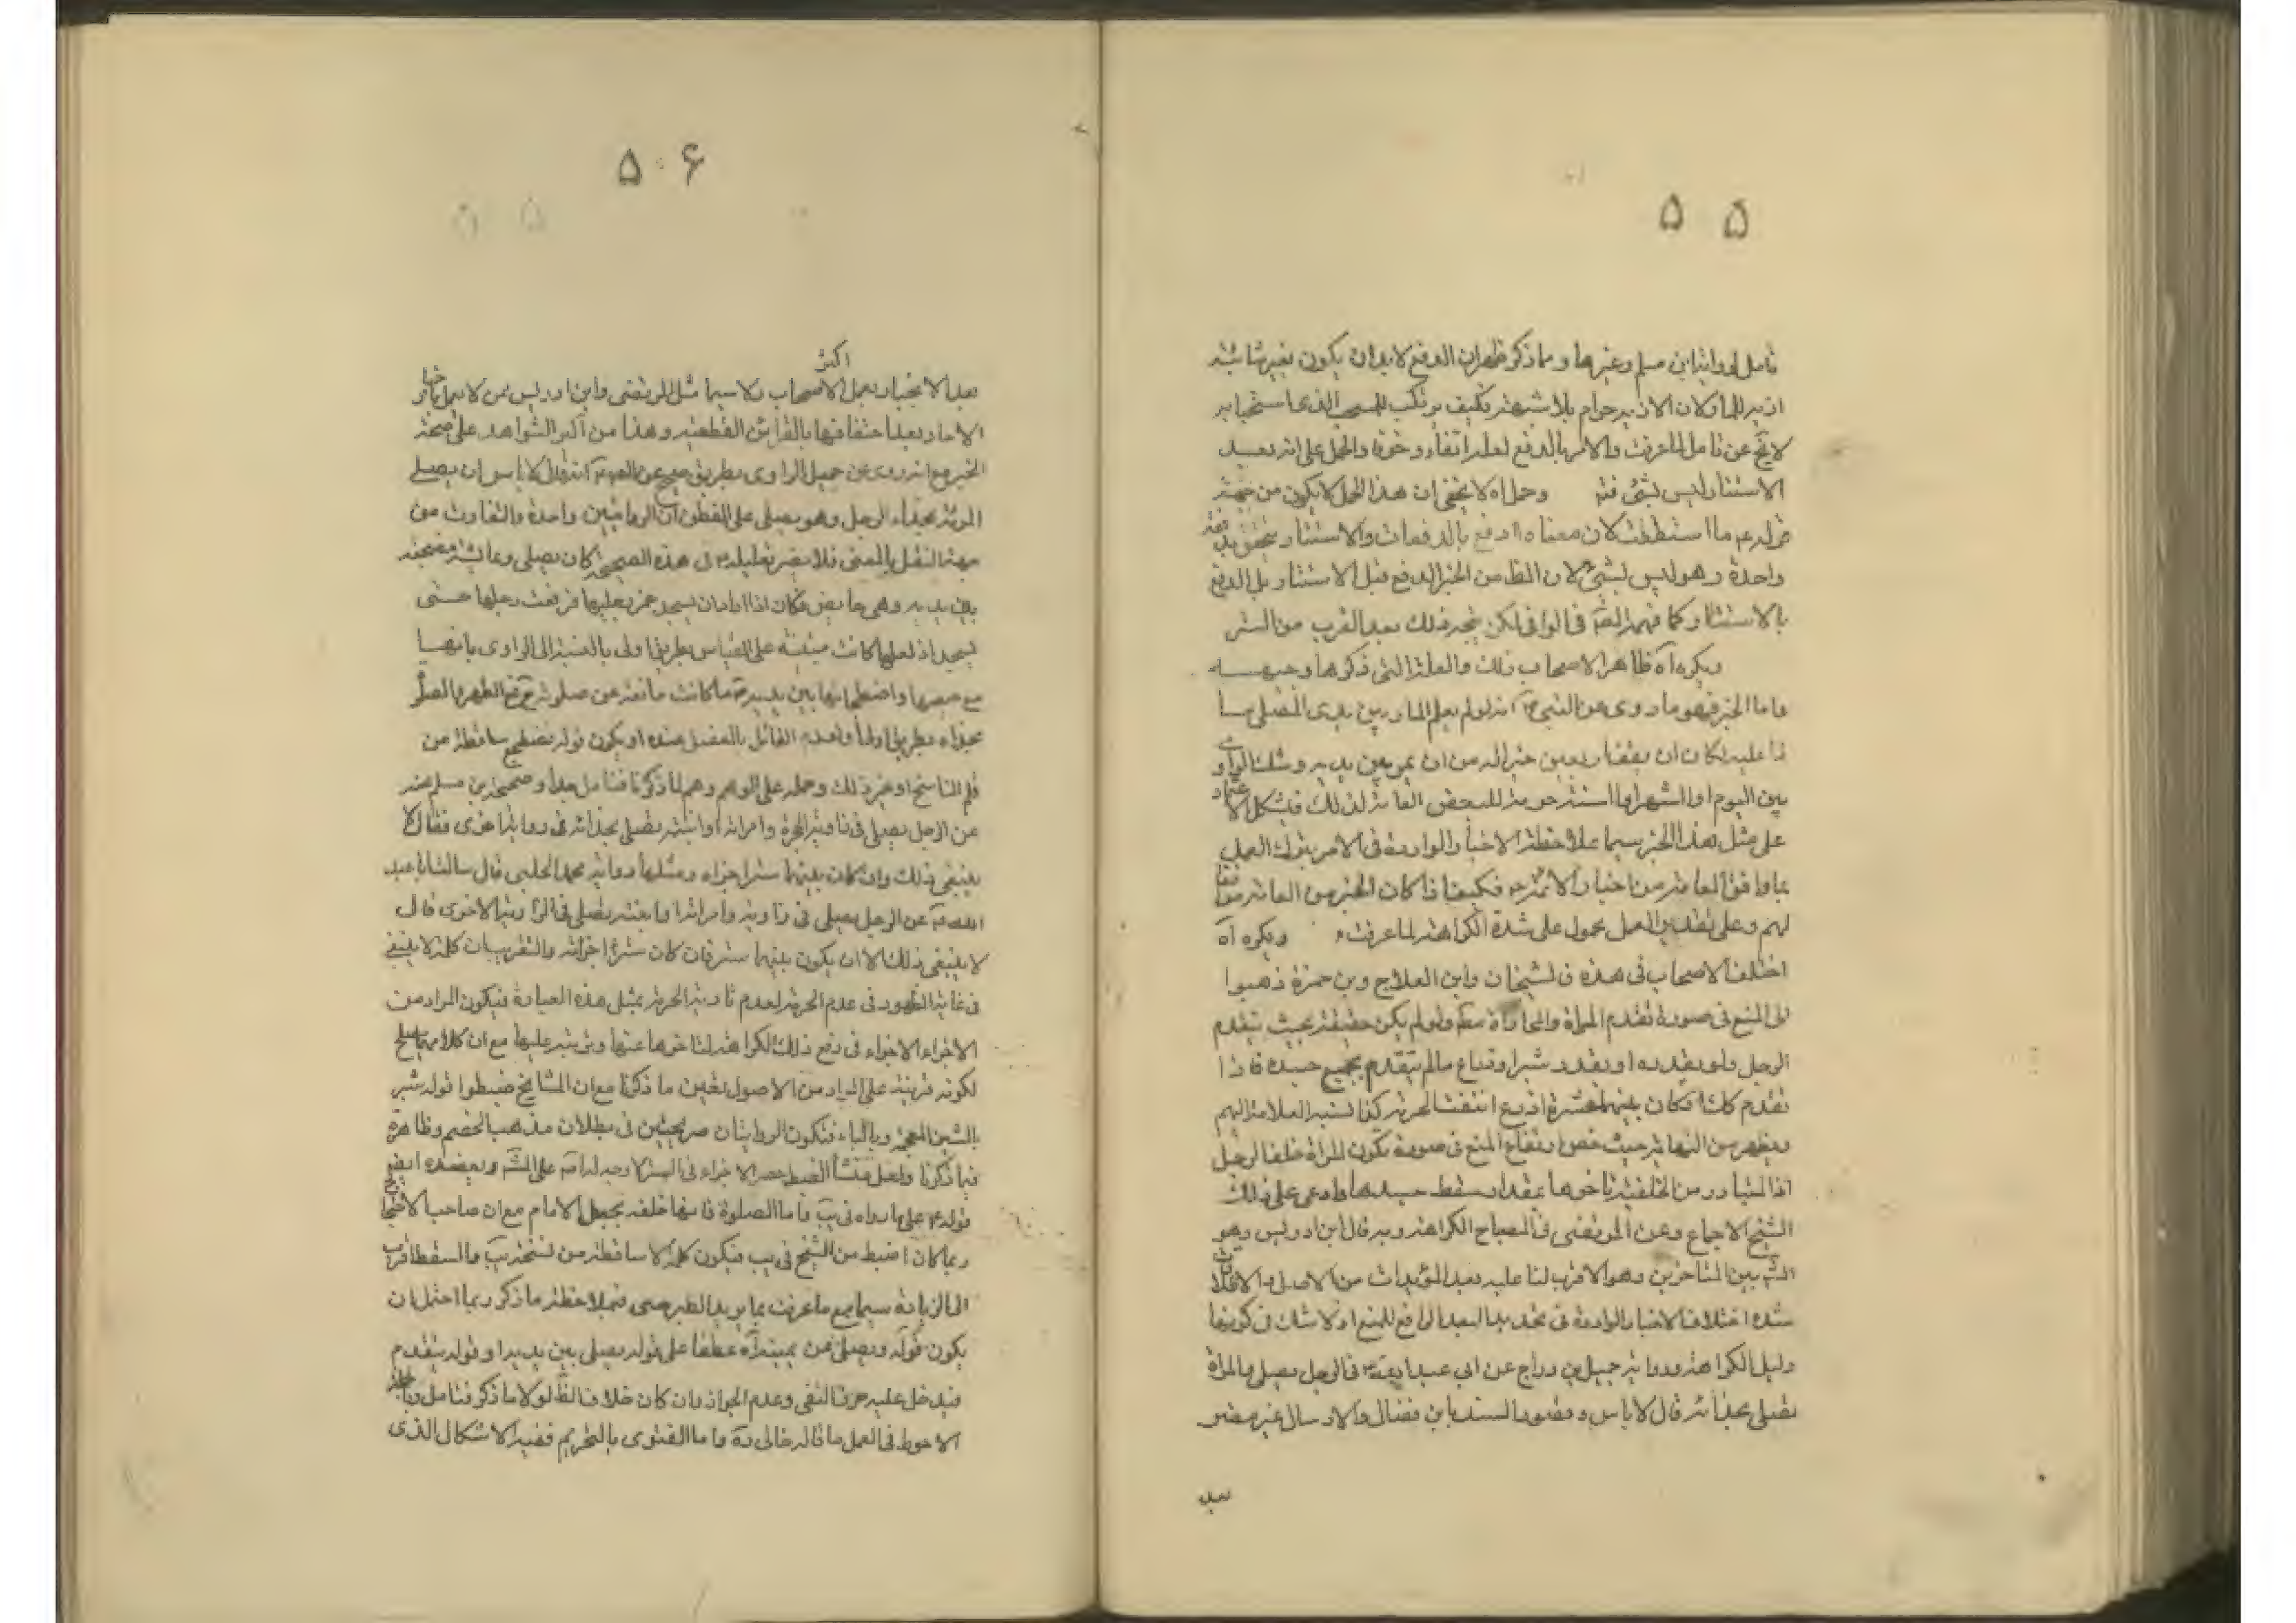 ۵ ۵
تامل لروايتا ابن مسلم وغيرها ومما ذكر ظهر ان الدفع لابد ان يكون بغير شائبة
اذية للمار لان الاذية حرام بلا شبهة فكيف يرتكب للمستحب الذي استحبابه
لا يخ عن تامل لما عرفت والامر بالدفع لعله اتقاء وخوفا والحمل على انه بعيد
الاستتار ليس بشئ فتد وحمل اه لا يخفى ان هذا الحمل لا يكون من جهة
قوله ع ما استطعت لان معناه ادفع بالدفعات والاستتار يتحقق بدفعة
واحدة وهو ليس بشئ لان الظ من الخبر الدفع قبل الاستتار بل الدفع
بالاستتار كما فهمه المص في الوافي لكن يتجه ذلك بعد القرب من الستر
ويكره آه ظاهر الاصحاب ذلك والعلة التي ذكرها وجيهه
واما الخبر فهو ما روى عن النبي ص انه لو يعلم المار بين يدى المصلى ما
ذا عليه لكان ان يقف اربعين خير اله من ان يمر بين يديه وشك الراوي
بين اليوم او الشهر او السنة لذلك فيشكل الاعتماد
على مثل هذا الخبر سيما بملاحظة الاخبار الواردة في الامر بترك العمل
بما وافق العامة من اخبار الائمة ع فكيف اذا كان الخبر من العامة موافقا
لهم وعلى تقدير العمل محمول على شدة الكراهة لما عرفت ويكره آه
اختلف الاصحاب في هذه فالشيخان وابن العلاج وبن حمزة ذهبوا
الى المنع في صورة تقدم المراة والمحاذاة مط ولو لم يكن حقيقة بحيث يتقدم
الرجل ولو بقدر او بقدر شبر او ذراع ما لم يتقدم بجميع جسده فاذا
تقدم كك او كان بينهما عشرة اذرع انتفت الحرمة كذا نسبه العلامة اليهم
ويظهر من النهاية حيث خص ارتفاع المنع في صورة يكون المراة خلف الرجل
اذ المتبادر من الخلفية تاخرها بمقدار مسقط جسدها وادعى على ذلك
الشيخ الاجماع وعن المرتضى في المصباح الكراهة وبه قال ابن ادريس وهو
المش بين المتاخرين وهو الاقرب لنا عليه بعد المؤيدات من الاصل والاطلاقات
شدة اختلاف الاخبار الواردة في تحديد البعد الرافع للمنع اذ لا شك في كونها
دليل الكراهة ورواية جميل بن دراج عن ابي عبدالله ع في الرجل يصلى والمراة
تصلى بحذائه قال لا باس وقصور السند بابن فضال والارسال غير مضر
بعد
۵ ۶
اكثر
بعد الانجبار بعمل الاصحاب ولا سيما مثل المرتضى وابن ادريس ممن لا يعمل باخبار
الاحاد بعد احتفافها بالقرائن القطعية وهذا من اكبر الشواهد على صحة
الخبر مع انه روى عن جميل الراوى بطريق صحيح عن انه قال لا باس ان يصلى
المرئة بحذاء الرجل وهو يصلى على الفطون ان الروايتين واحدة والتفاوت من
جهة النقل بالمعنى فلا يضر تعليله في هذه الصحيحة كان يصلى وعايشة مضجعة
بين يديه وهى حايض وكان اذا اراد ان يسجد غمز رجليها فرفعت رجلها حتى
يسجد اذ لعلها كانت مبنية على القياس بطريق اولى بالنسبة الى الراوى بانها
مع حيضها واضطجاعها بين يديه ص ما كانت مانعة عن صلوته فمع الطهر والصلوة
بحذاه بطريق اولى ولعدم القائل بالفصل عنده او يكون قوله تضطجع ساقطة من
قلم الناسخ او غير ذلك وحمله على الوهم وهم لما ذكرنا فتامل جدا وصحيحة بن مسلم عنه
عن الرجل يصلى في زاوية الحجرة وامراته او ابنته تصلى بحذائه في رواية اخرى فقال لا
ينبغى ذلك وان كان بينهما ستر اجزاه ومثلها رواية محمد الحلبى قال سالت ابا عبد
الله ع عن الرجل يصلى في زاوية وامراته او ابنته تصلى في الزاوية الاخرى قال
لا ينبغى ذلك الا ان يكون بينهما ستر فان كان سترا اجزائه والتقريب ان كلمة لا ينبغى
في غاية الظهور في عدم الحرمة لعدم تادية الحرمة بمثل هذه العبارة فيكون المراد من
الاجزاء الاجزاء في رفع ذلك الكراهة لتاخرها عنها وترتبه عليها مع ان كلا منهما يصلح
لكونه قرينة على المراد من الاصول لتعين ما ذكرنا مع ان المشايخ ضبطوا قوله شبر
بالشين المعجمة وبالباء فيكون الروايتان صريحتين في بطلان مذهب الخصم وظاهرة
فيما ذكرنا ولعل منشأ الضبط حصر الاجزاء في الستر لا وجه له
قوله ع على ما رواه في يب فاما الصلوة خلفه بجعل الامام مع ان صاحب
ربما كان اضبط من الشيخ في يب فيكون كلمة لا ساقطة من نسخة يب والسقط اقرب
الى الزيادة سيما مع ما عرفت بما بملاحظة ما ذكر ربما احتمل ان
يكون قوله ويصلى عن يمينه آه عطفا على قوله يصلى بين يديه او قوله يتقدم
فيدخل عليه حرف النفى وعدم الجواز وان كان خلاف الظ لولا ما ذكر فتامل
الاحوط في العمل ما قاله خالى ره واما الفتوى بالتحريم ففيه الاشكال الذى